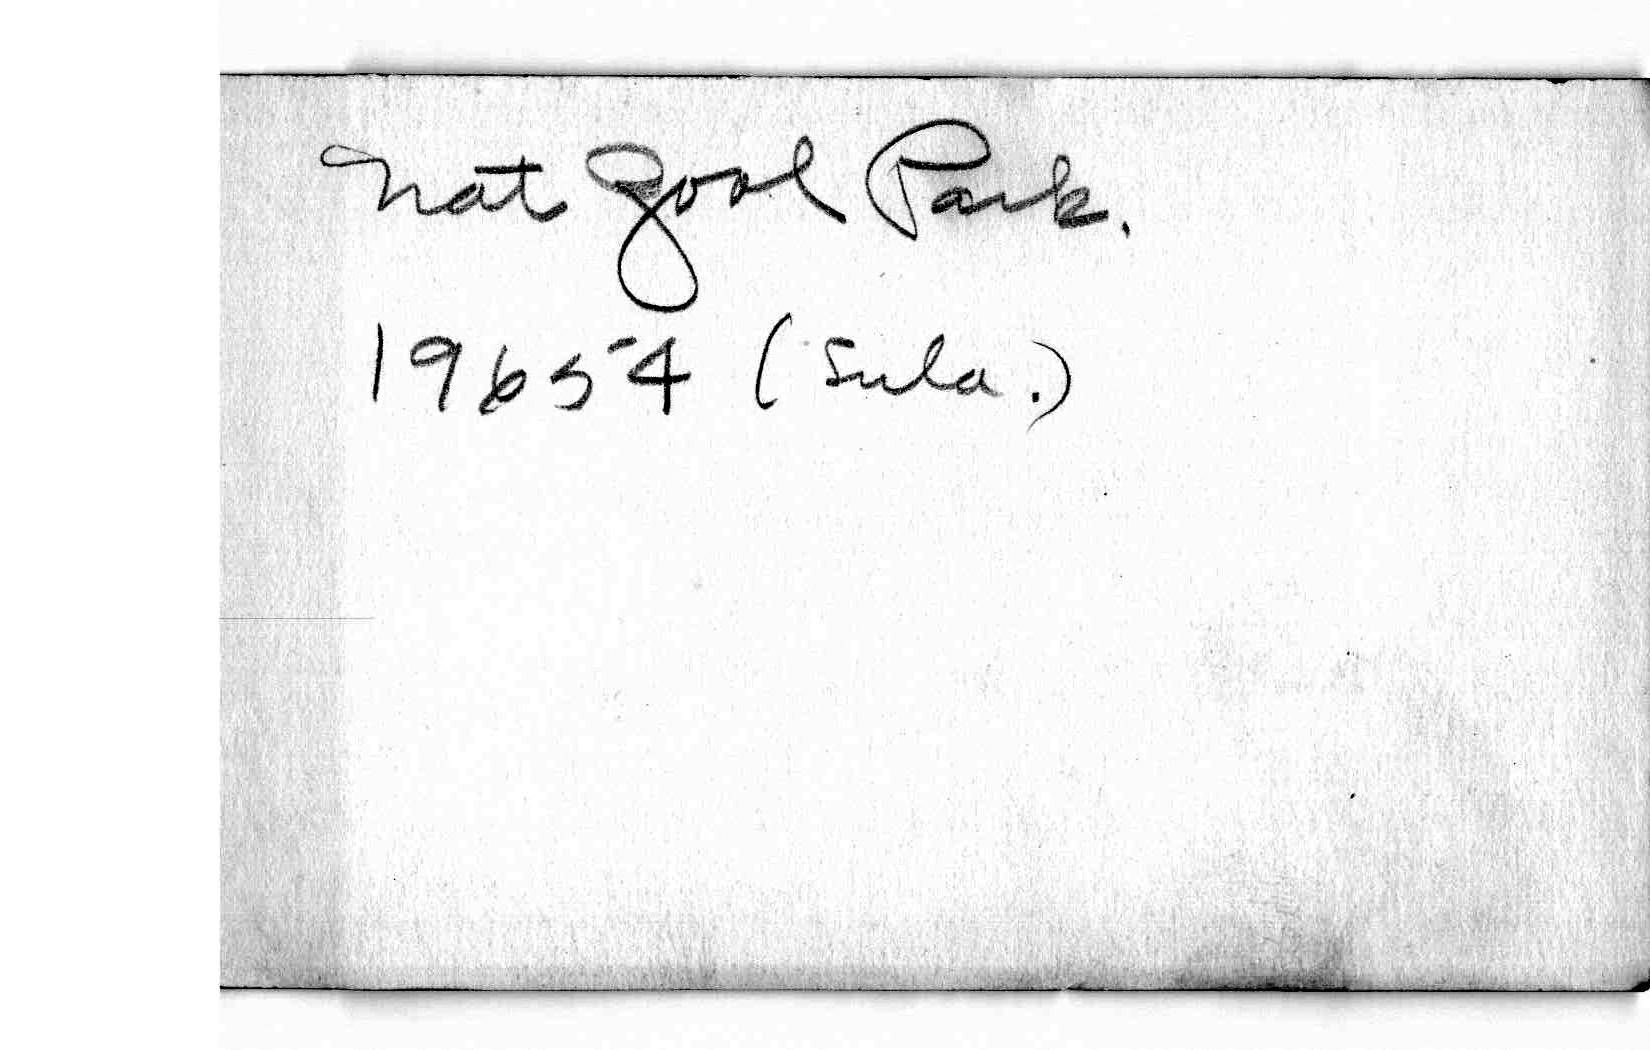 Nat Zool Park.
19654 (Sula.)